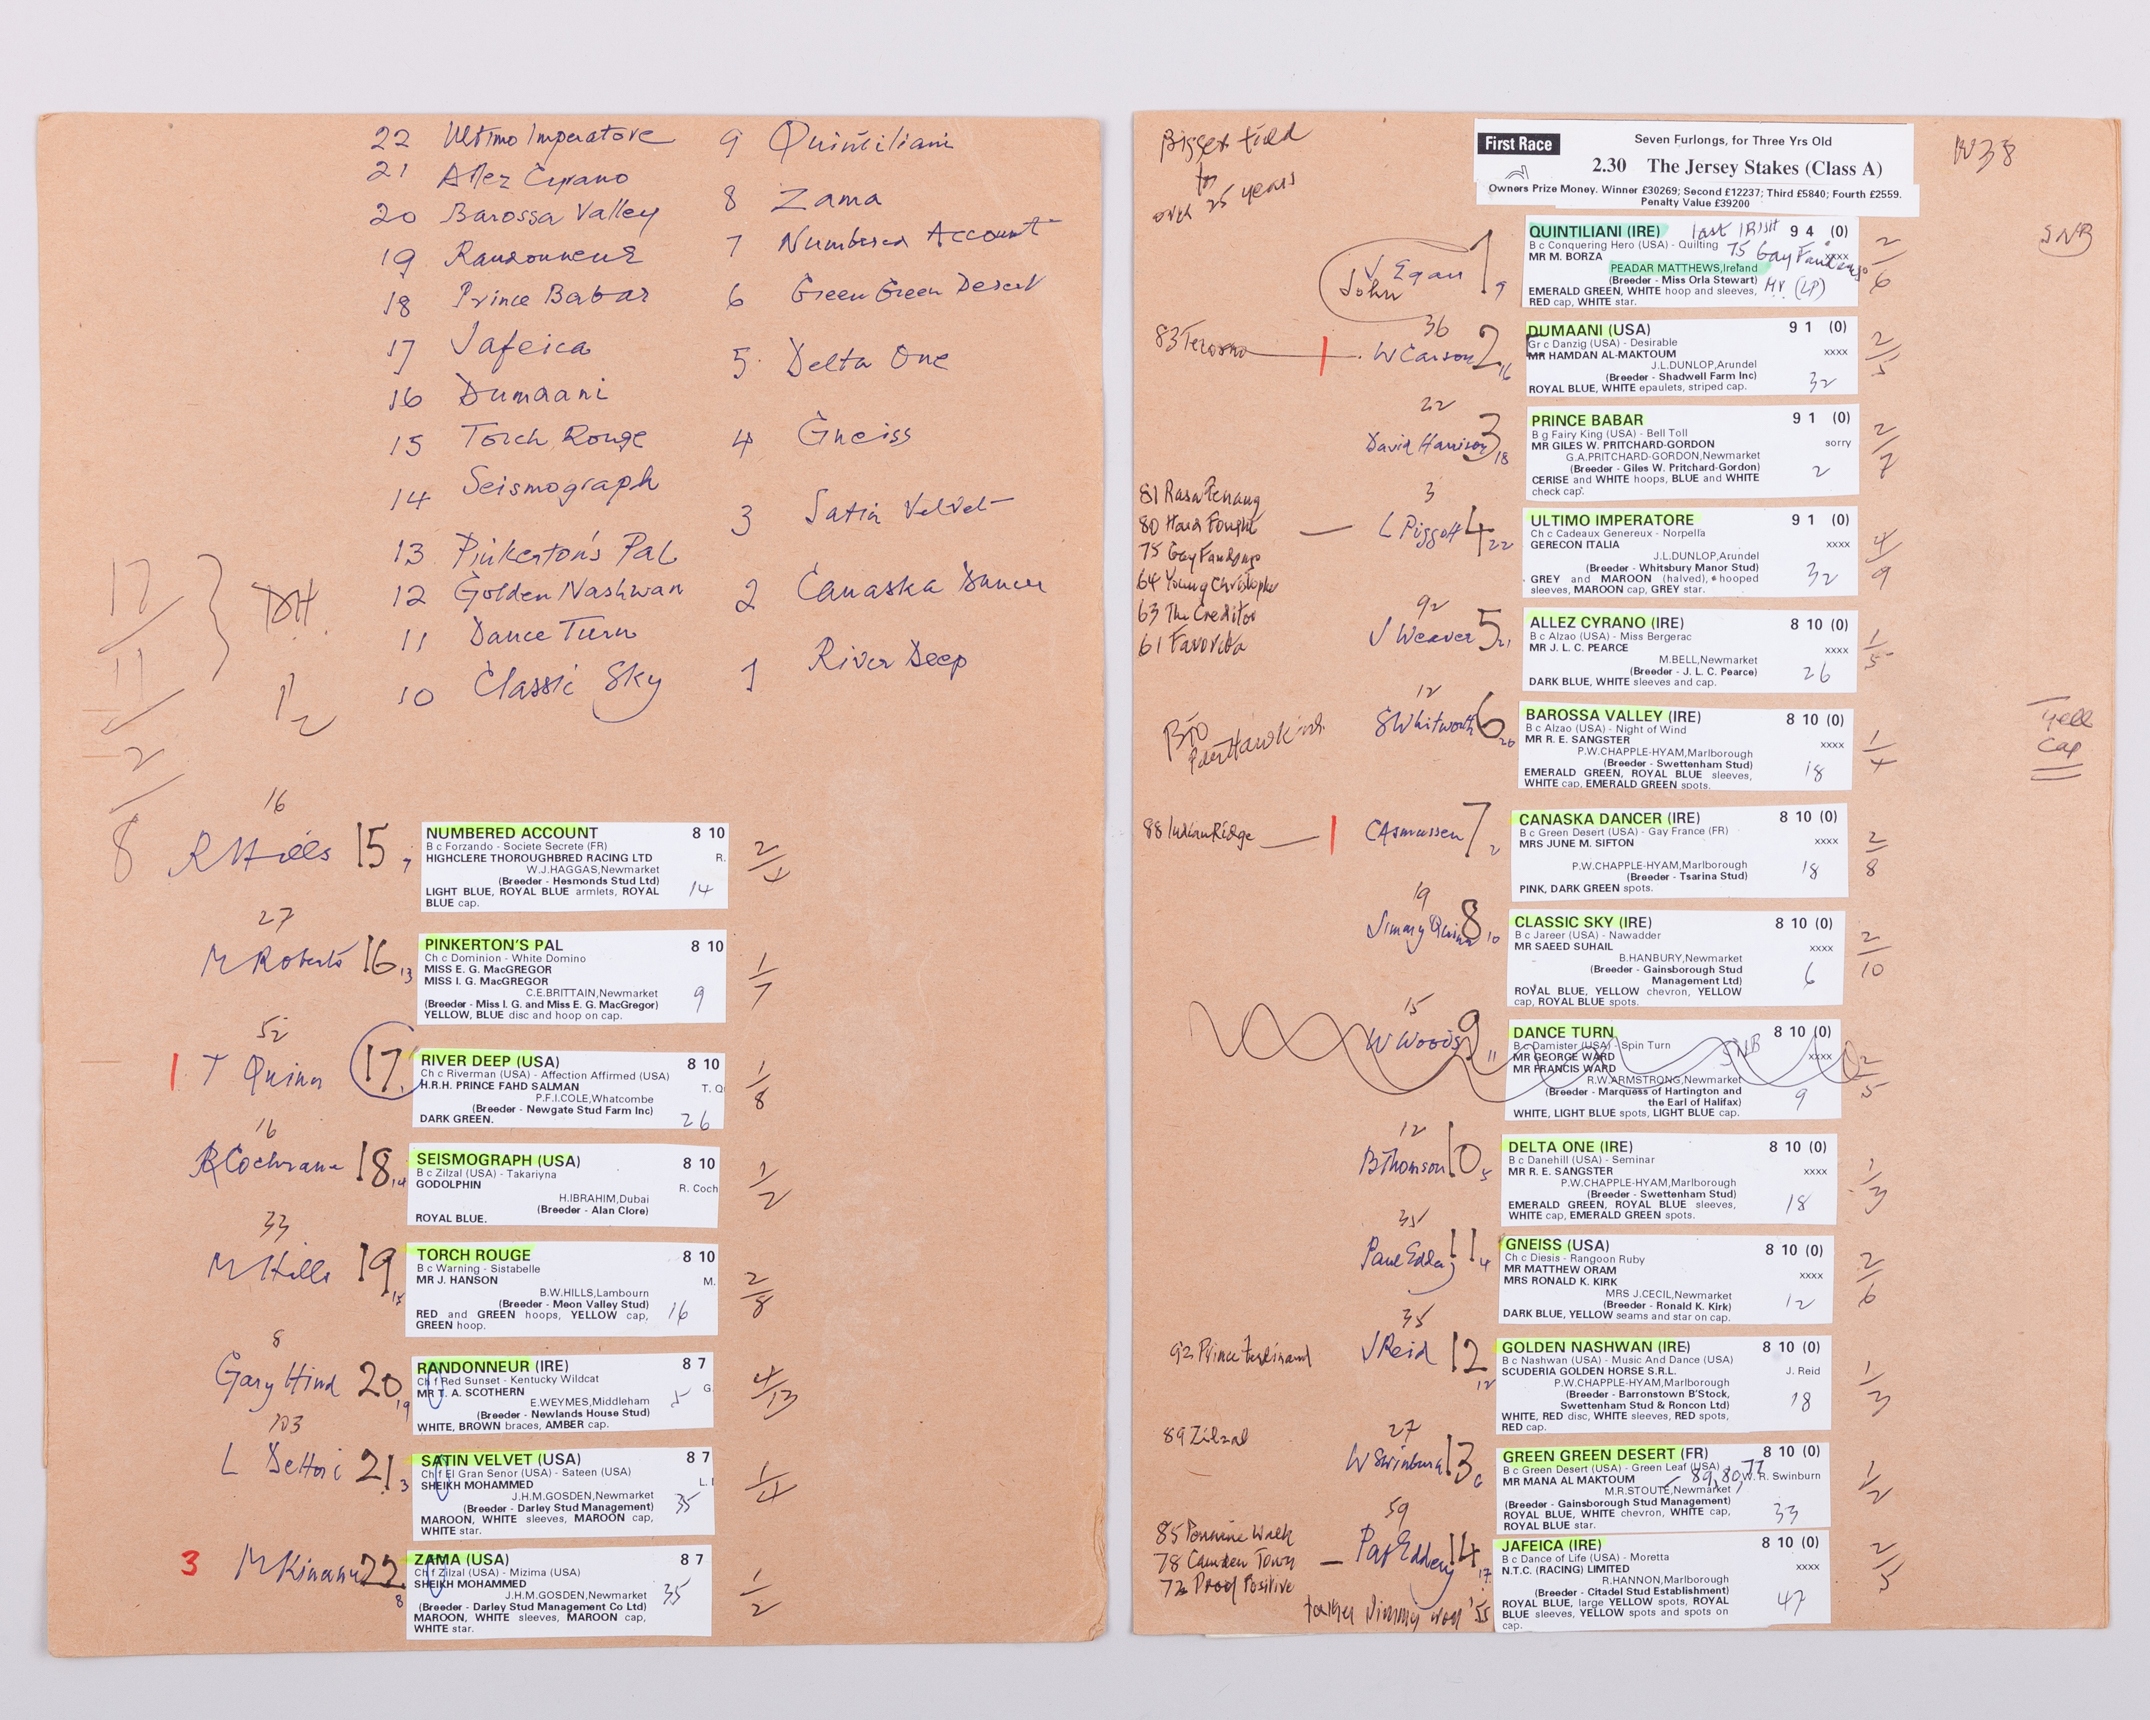 22 Ultimo Imperatore
21 Allez Cyrano
20 Barossa Valley
19 Randonneur
18 Prince Babar
17 Jafeica
16 Dumaani
15 Torch Rouge
14 Seismograph
13 Pinkerton's Pal
12 Golden Nashwan
11 Dance Turn
10 Classic Sky
9 Quintiliani
8 Zama
7 Numbered Account
6 Green Green Desert
5 Delta One
4 Gneiss
3 Satin Velvet
2 Canaska Dancer
1 River Deep
17
11
2
8
DH.
1/2
16
R Hills 15 7
NUMBERED ACCOUNT 8 10
B c Forzando - Societe Secrete (FR)
HIGHCLERE THOROUGHBRED RACING LTD R.
W.J.HAGGAS,Newmarket
(Breeder - Hesmonds Stud Ltd) 14
LIGHT BLUE, ROYAL BLUE armlets, ROYAL
BLUE cap.
27
M Roberts 16 13
PINKERTON'S PAL 8 10
Ch c Dominion - White Domino
MISS E. G. MacGREGOR
MISS I. G. MacGREGOR
C.E.BRITTAIN,Newmarket 9
(Breeder - Miss I. G. and Miss E. G. MacGregor)
YELLOW, BLUE disc and hoop on cap.
1/7
52
1 T Quinn 17
RIVER DEEP (USA) 8 10
Ch c Riverman (USA) - Affection Affirmed (USA)
H.R.H. PRINCE FAHD SALMAN T. Q
P.F.I.COLE,Whatcombe
(Breeder - Newgate Stud Farm Inc)
DARK GREEN. 26
1/8
16
R Cochrane 18 14
SEISMOGRAPH (USA) 8 10
B c Zilzal (USA) - Takariyna
GODOLPHIN R. Coch
H.IBRAHIM,Dubai
(Breeder - Alan Clore)
ROYAL BLUE.
1/2
33
M Hills 19 15
TORCH ROUGE 8 10
B c Warning - Sistabelle
MR J. HANSON M.
B.W.HILLS,Lambourn
(Breeder - Meon Valley Stud)
RED and GREEN hoops, YELLOW cap, 16
GREEN hoop.
2/8
8
Gary Hind 20 19
RANDONNEUR (IRE) 8 7
Ch f Red Sunset - Kentucky Wildcat
MR T. A. SCOTHERN G.
E.WEYMES,Middleham 5
(Breeder - Newlands House Stud)
WHITE, BROWN braces, AMBER cap.
4/13
103
L Dettori 21 3
SATIN VELVET (USA) 8 7
Ch f El Gran Senor (USA) - Sateen (USA)
SHEIKH MOHAMMED L.
J.H.M.GOSDEN,Newmarket
(Breeder - Darley Stud Management) 35
MAROON, WHITE sleeves, MAROON cap,
WHITE star.
1/4
3 M Kinane 22 8
ZAMA (USA) 8 7
Ch f Zilzal (USA) - Mizima (USA)
SHEIKH MOHAMMED
J.H.M.GOSDEN,Newmarket 35
(Breeder - Darley Stud Management Co Ltd)
MAROON, WHITE sleeves, MAROON cap,
WHITE star.
1/2
Biggest field
for
over 25 years
First Race
Seven Furlongs, for Three Yrs Old
2.30 The Jersey Stakes (Class A)
Owners Prize Money. Winner £30269; Second £12237; Third £5840; Fourth £2559.
Penalty Value £39200
W38
SNB
John J Egan 1 9
QUINTILIANI (IRE) last IRISH 9 4 (0)
B c Conquering Hero (USA) - Quilting 75 Gay Fandango
MR M. BORZA xxxx
PEADAR MATTHEWS,Ireland
(Breeder - Miss Orla Stewart) (LP)
EMERALD GREEN, WHITE hoop and sleeves,
RED cap, WHITE star.
2/6
36
83 Tecorno 1 W Carson 2 16
DUMAANI (USA) 9 1 (0)
Gr c Danzig (USA) - Desirable
MR HAMDAN AL-MAKTOUM xxxx
J.L.DUNLOP,Arundel
(Breeder - Shadwell Farm Inc) 32
ROYAL BLUE, WHITE epaulets, striped cap.
22
David Harrison 3 18
PRINCE BABAR 9 1 (0)
B g Fairy King (USA) - Bell Toll
MR GILES W. PRITCHARD-GORDON sorry
G.A.PRITCHARD-GORDON,Newmarket
(Breeder - Giles W. Pritchard-Gordon) 2
CERISE and WHITE hoops, BLUE and WHITE
check cap.
2/7
81 Rasa Penang
80 Hard Fought
75 Gay Fandango
64 Young Christopher
63 The Creditor
61 Favorita
3
L Piggott 4 22
ULTIMO IMPERATORE 9 1 (0)
Ch c Cadeaux Genereux - Norpella
GERECON ITALIA xxxx
J.L.DUNLOP,Arundel
(Breeder - Whitsbury Manor Stud) 32
GREY and MAROON (halved), hooped
sleeves, MAROON cap, GREY star.
4/9
92
J Weaver 5 21
ALLEZ CYRANO (IRE) 8 10 (0)
B c Alzao (USA) - Miss Bergerac
MR J. L. C. PEARCE xxxx
M.BELL,Newmarket
(Breeder - J. L. C. Pearce) 26
DARK BLUE, WHITE sleeves and cap.
1/5
12
S Whitworth 6 20
BAROSSA VALLEY (IRE) 8 10 (0)
B c Alzao (USA) - Night of Wind
MR R. E. SANGSTER xxxx
P.W.CHAPPLE-HYAM,Marlborough
(Breeder - Swettenham Stud) 18
EMERALD GREEN, ROYAL BLUE sleeves,
WHITE cap, EMERALD GREEN spots.
Yell
cap
88 Indian Ridge 1 C Asmussen 7 2
CANASKA DANCER (IRE) 8 10 (0)
B c Green Desert (USA) - Gay France (FR)
MRS JUNE M. SIFTON xxxx
P.W.CHAPPLE-HYAM,Marlborough
(Breeder - Tsarina Stud) 18
PINK, DARK GREEN spots.
2/8
19
Jimmy Quinn 8 10
CLASSIC SKY (IRE) 8 10 (0)
B c Jareer (USA) - Nawadder
MR SAEED SUHAIL xxxx
B.HANBURY,Newmarket
(Breeder - Gainsborough Stud
Management Ltd) 6
ROYAL BLUE, YELLOW chevron, YELLOW
cap, ROYAL BLUE spots.
2/10
15
W Woods 9 11
DANCE TURN 8 10 (0)
B c Damister (USA) - Spin Turn SNB
MR GEORGE WARD xxxx
MR FRANCIS WARD
R.W.ARMSTRONG,Newmarket
(Breeder - Marquess of Hartington and
the Earl of Halifax) 9
WHITE, LIGHT BLUE spots, LIGHT BLUE cap.
2/5
12
B Thomson 10 5
DELTA ONE (IRE) 8 10 (0)
B c Danehill (USA) - Seminar
MR R. E. SANGSTER xxxx
P.W.CHAPPLE-HYAM,Marlborough
(Breeder - Swettenham Stud)
EMERALD GREEN, ROYAL BLUE sleeves, 18
WHITE cap, EMERALD GREEN spots.
1/3
35
Paul Eddery 11 4
GNEISS (USA) 8 10 (0)
Ch c Diesis - Rangoon Ruby
MR MATTHEW ORAM
MRS RONALD K. KIRK xxxx
MRS J.CECIL,Newmarket
(Breeder - Ronald K. Kirk) 12
DARK BLUE, YELLOW seams and star on cap.
2/6
35
92 Prince Ferdinand J Reid 12 12
GOLDEN NASHWAN (IRE) 8 10 (0)
B c Nashwan (USA) - Music And Dance (USA)
SCUDERIA GOLDEN HORSE S.R.L. J. Reid
P.W.CHAPPLE-HYAM,Marlborough
(Breeder - Barronstown B'Stock,
Swettenham Stud & Roncon Ltd) 18
WHITE, RED disc, WHITE sleeves, RED spots,
RED cap.
1/3
27
89 Zilzal W Swinburn 13 6
GREEN GREEN DESERT (FR) 8 10 (0)
B c Green Desert (USA) - Green Leaf (USA)
MR MANA AL MAKTOUM 89, 80, 77 W. R. Swinburn
M.R.STOUTE,Newmarket
(Breeder - Gainsborough Stud Management) 33
ROYAL BLUE, WHITE chevron, WHITE cap,
ROYAL BLUE star.
1/2
59
85 Pennine Walk
78 Camden Town
72 Proof Positive
Pat Eddery 14 17
father Jimmy won '55
JAFEICA (IRE) 8 10 (0)
B c Dance of Life (USA) - Moretta
N.T.C. (RACING) LIMITED xxxx
R.HANNON,Marlborough
(Breeder - Citadel Stud Establishment)
ROYAL BLUE, large YELLOW spots, ROYAL 47
BLUE sleeves, YELLOW spots and spots on
cap.